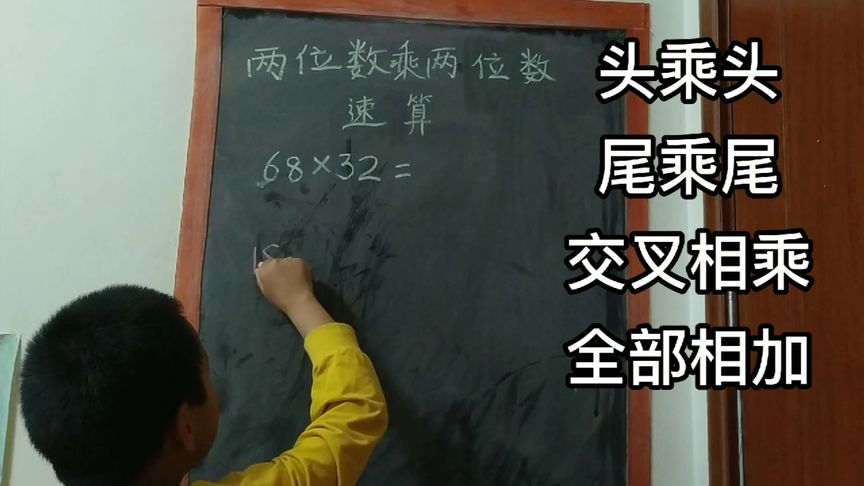 两位数乘两位数
速算
68×32=
头乘头
尾乘尾
交叉相乘
全部相加